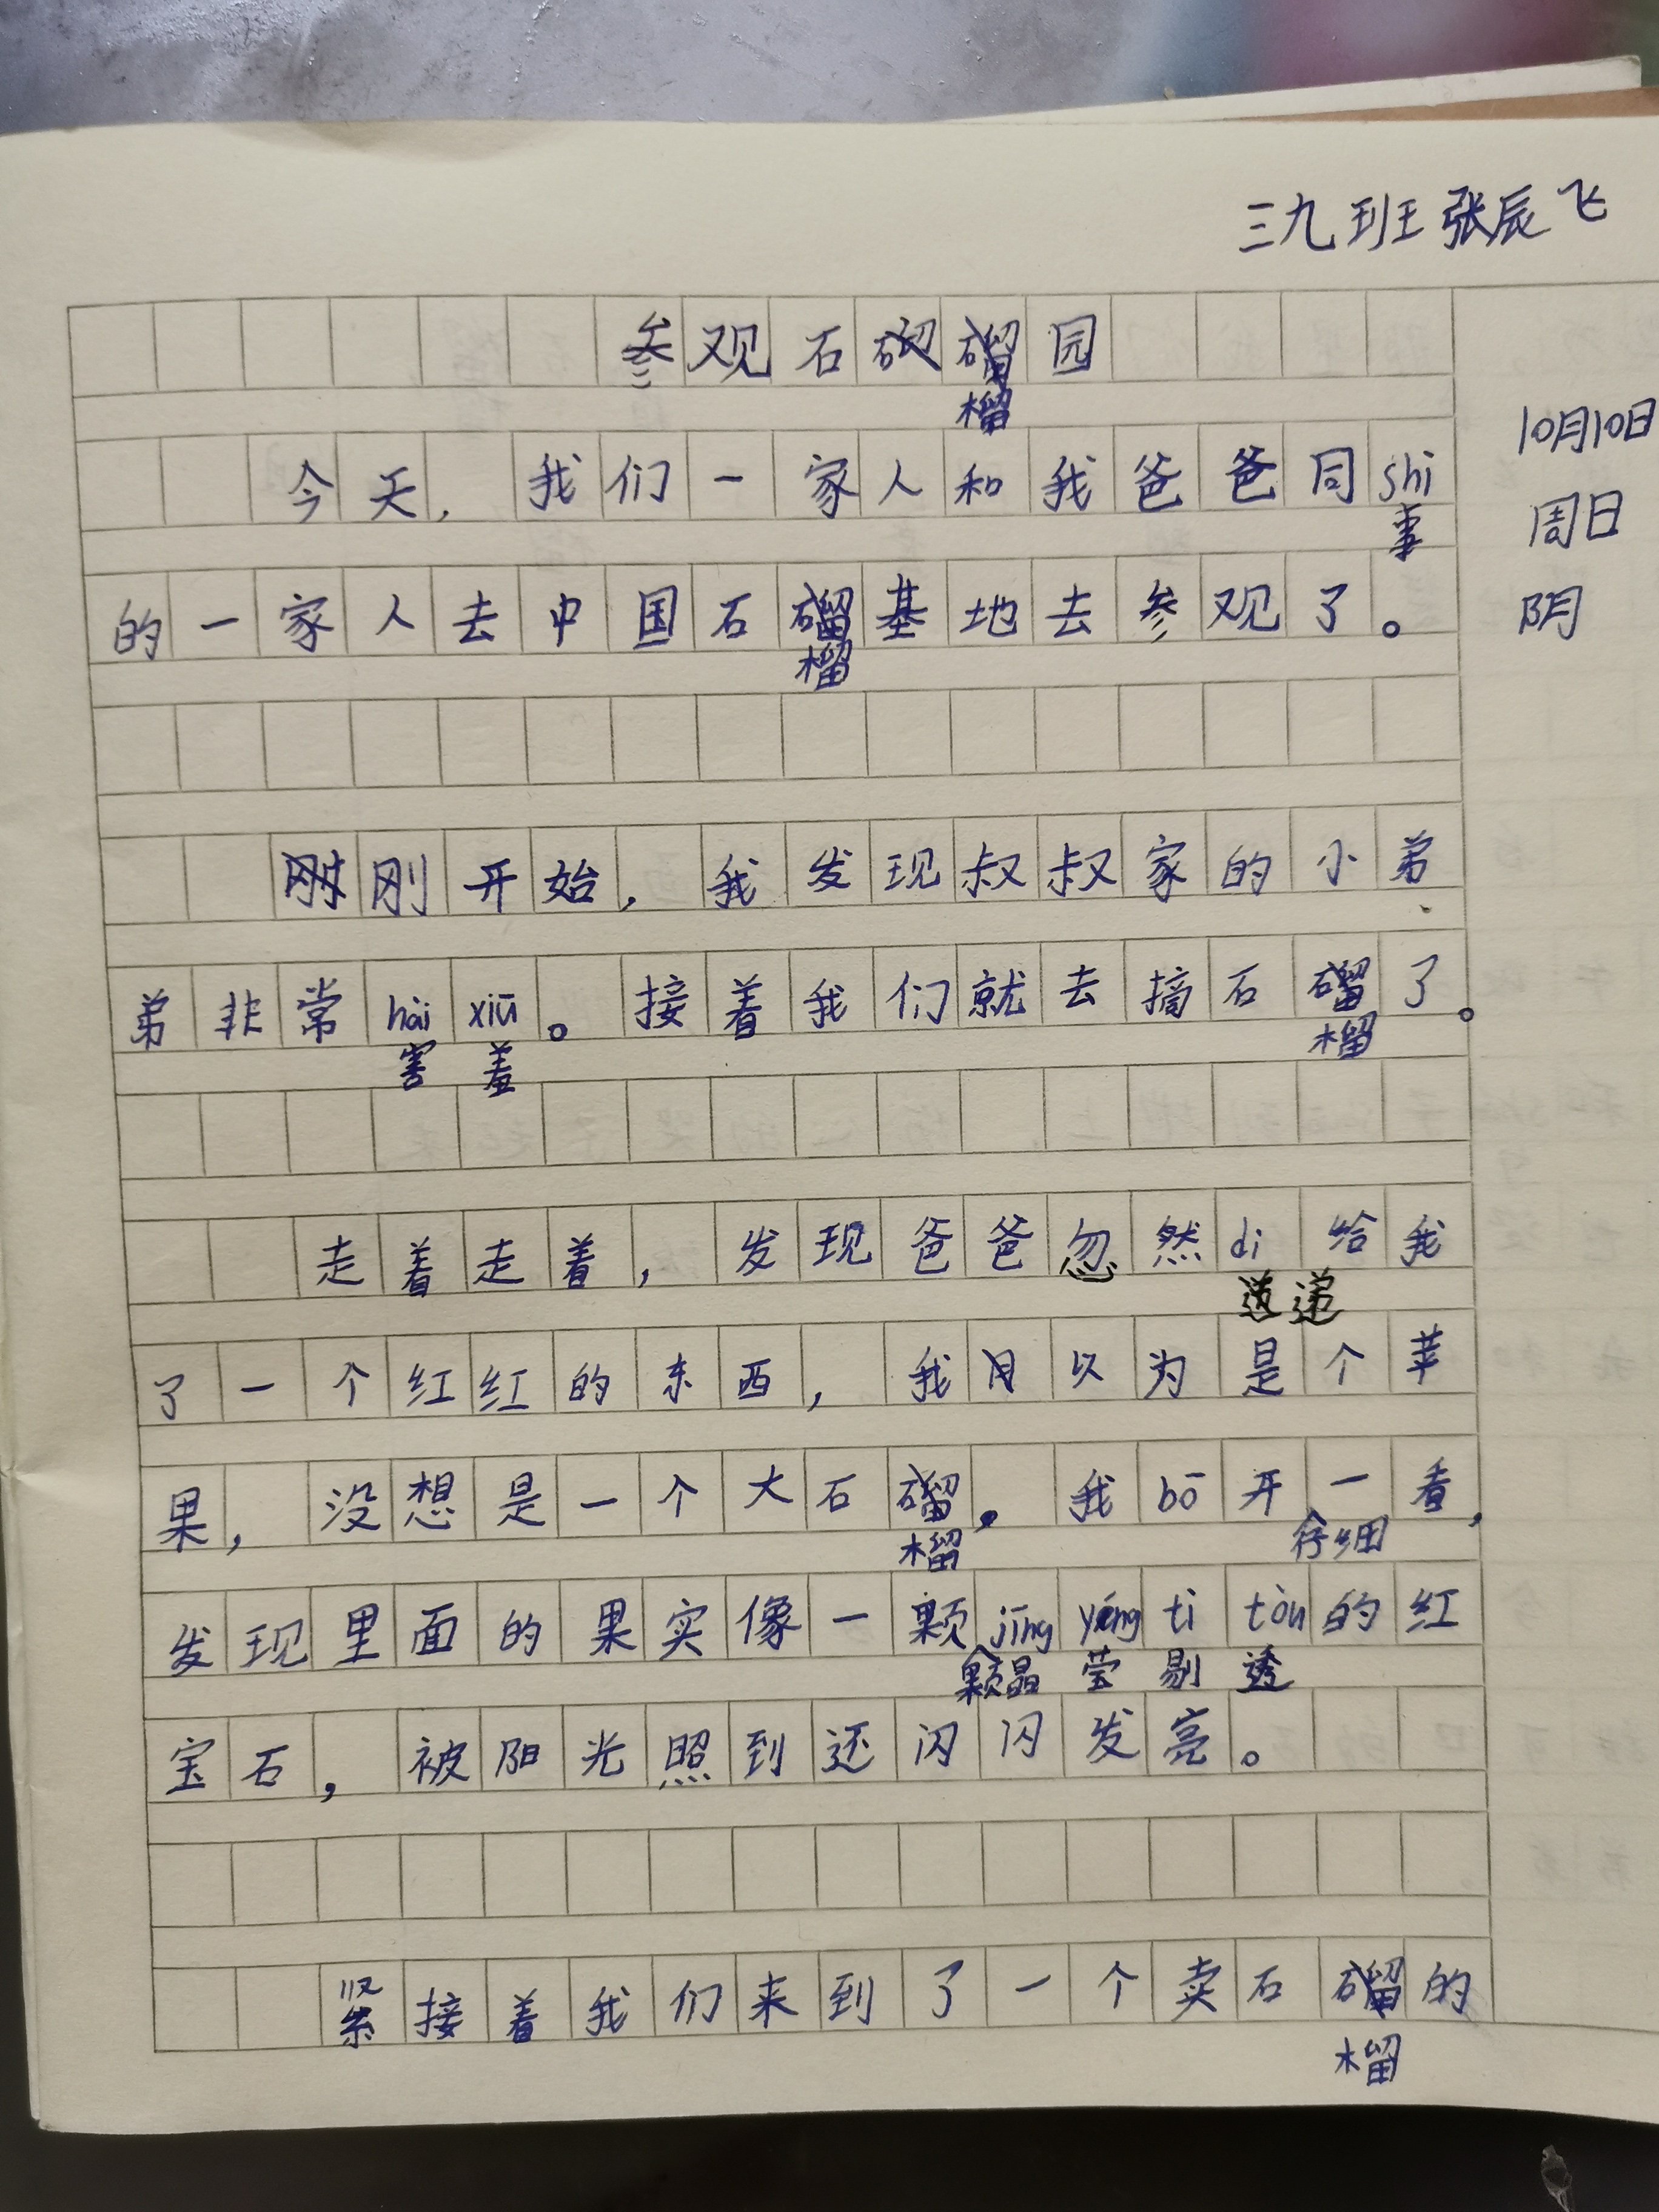 三九班张辰飞
参观石榴园
榴
10月10日
周日
阴
今天，我们一家人和我爸爸同shì
事
的一家人去中国石榴基地去参观了。
榴
刚开始，我发现叔叔家的小弟
弟非常hài xiū。接着我们就去摘石榴了。
害羞 榴
走着走着，发现爸爸忽然dì给我
递
了一个红红的东西，我以为是个苹
果，没想是一个大石榴。我bō开一看，
榴 仔细
发现里面的果实像一颗jīng yíng tì tòu的红
颗晶莹剔透
宝石，被阳光照到还闪闪发亮。
紧接着我们来到了一个卖石榴的
榴